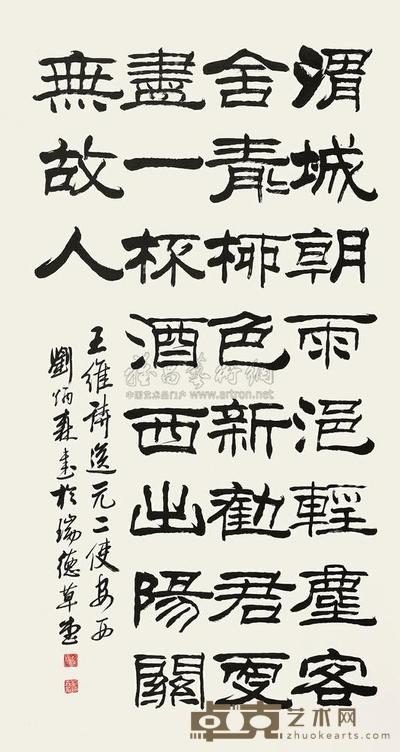 渭城朝雨浥輕塵客
舍青柳色新勸君更
盡一杯酒西出陽關
無故人
王維詩送元二使安西
劉炳森書於瑞德草堂
雅昌藝術網
中国艺术品门户 www.artron.net
卓克艺术网
www.zhuokearts.com